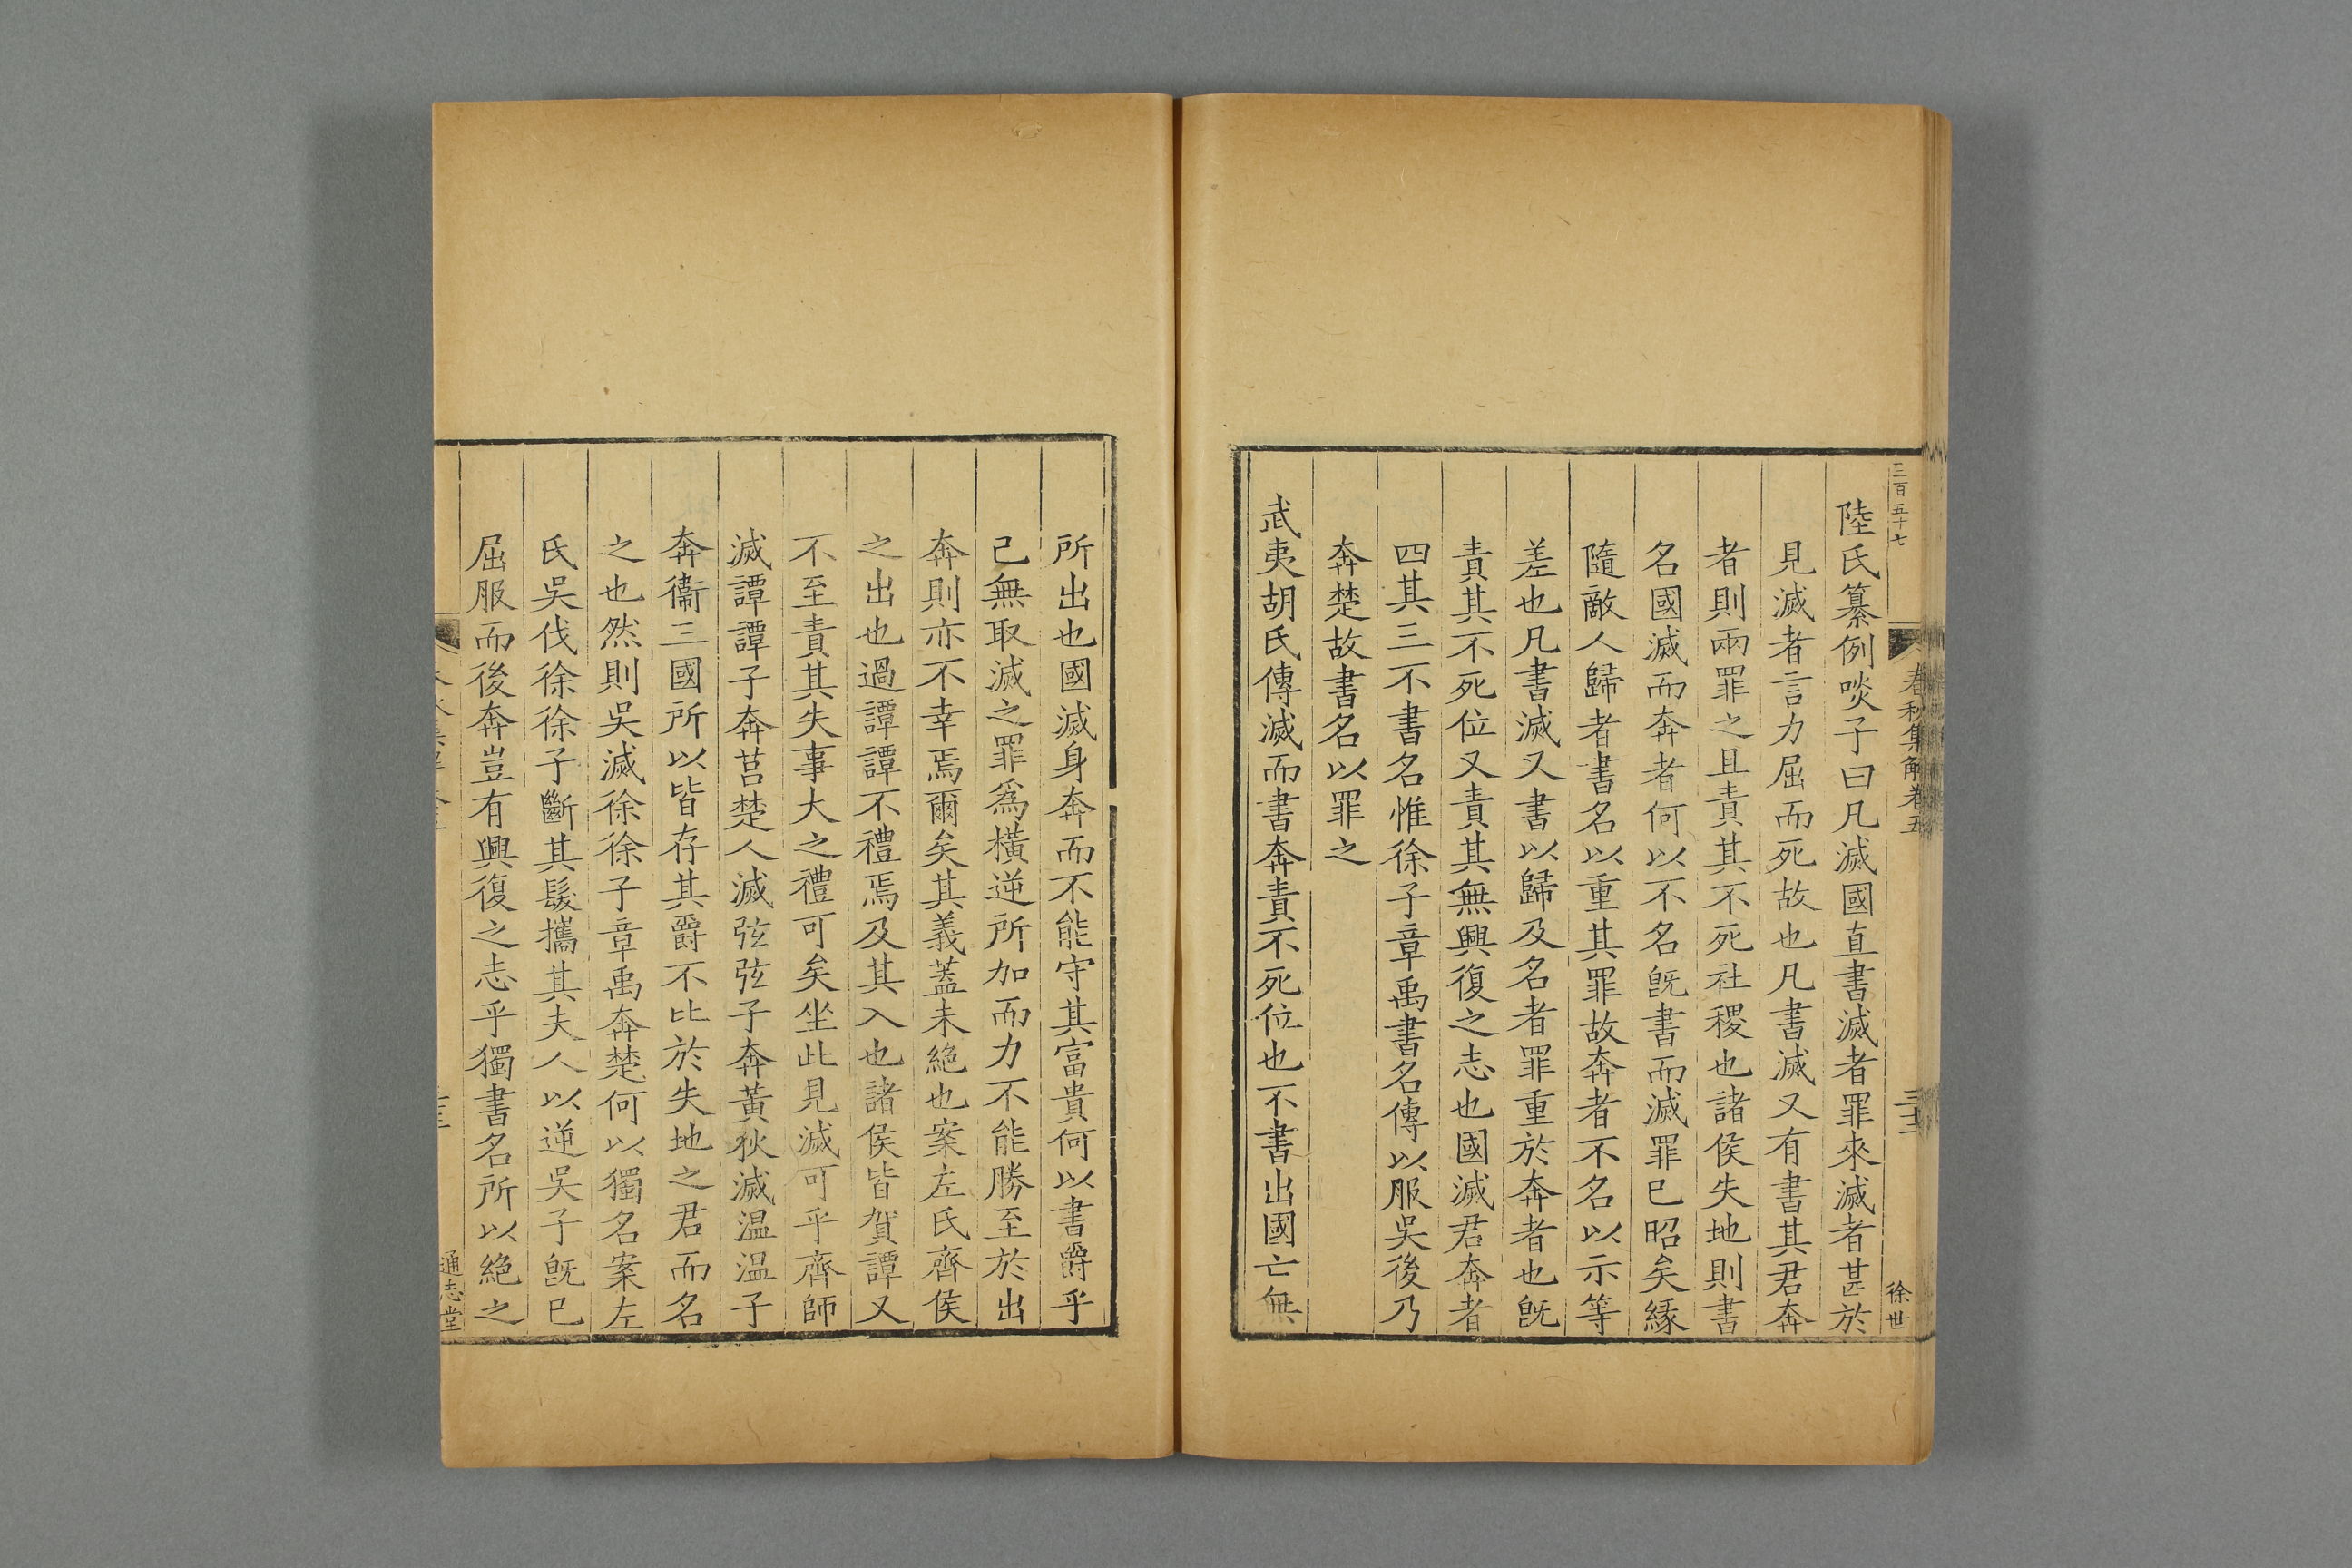 三百五十七
春秋集解卷五
三十二
徐世
陸氏纂例啖子曰凡滅國直書滅者罪來滅者甚於
見滅者言力屈而死故也凡書滅又有書其君奔
者則兩罪之且責其不死社稷也諸侯失地則書
名國滅而奔者何以不名旣書而滅罪已昭矣緣
隨敵人歸者書名以重其罪故奔者不名以示等
差也凡書滅又書以歸及名者罪重於奔者也旣
責其不死位又責其無興復之志也國滅君奔者
四其三不書名惟徐子章禹書名傳以服吳後乃
奔楚故書名以罪之
武夷胡氏傳滅而書奔責不死位也不書出國亡無
所出也國滅身奔而不能守其富貴何以書爵乎
己無取滅之罪爲橫逆所加而力不能勝至於出
奔則亦不幸焉爾矣其義蓋未絕也案左氏齊侯
之出也過譚譚不禮焉及其入也諸侯皆賀譚又
不至責其失事大之禮可矣坐此見滅可乎齊師
滅譚譚子奔莒楚人滅弦弦子奔黃狄滅温温子
奔衞三國所以皆存其爵不比於失地之君而名
之也然則吳滅徐徐子章禹奔楚何以獨名案左
氏吳伐徐徐子斷其髮攜其夫人以逆吳子旣已
屈服而後奔豈有興復之志乎獨書名所以絕之
通志堂